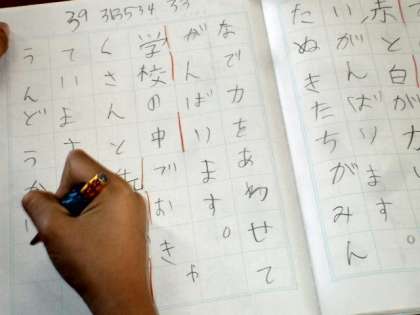 39 313534 33
赤と白が力
い、がんばります
たぬきたちがみん
なで力をあわせて
がんばります。
学校の中でおきゃ
くさんと
ていま
うんどうかい